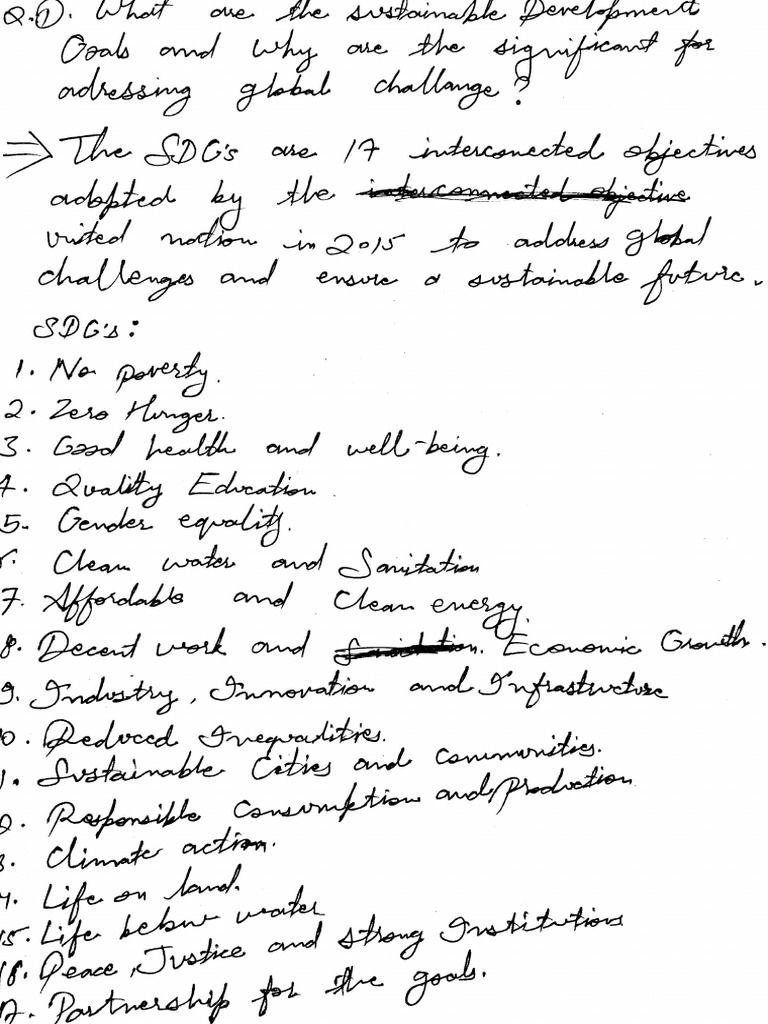 Q.1). What are the sustainable Development
Goals and why are the significant for
adressing global challange?
⇒ The SDG's are 17 interconected objectives
adopted by the interconnected objective
united nation in 2015 to address global
challenges and ensure a sustainable future.
SDG's:
1. No poverty.
2. Zero Hunger.
3. Good health and well-being.
4. Quality Education
5. Gender equality.
6. Clean water and Sanitation
7. Affordable and Clean energy.
8. Decent work and Economic Growth.
9. Industry, Innovation and Infrastructure
0. Reduced Inequalities.
1. Sustainable Cities and communities.
2. Responsible Consumption and production
3. Climate action.
4. Life on land.
15. Life below water
16. Peace, Justice and strong Institutions
17. Partnership for the goals.